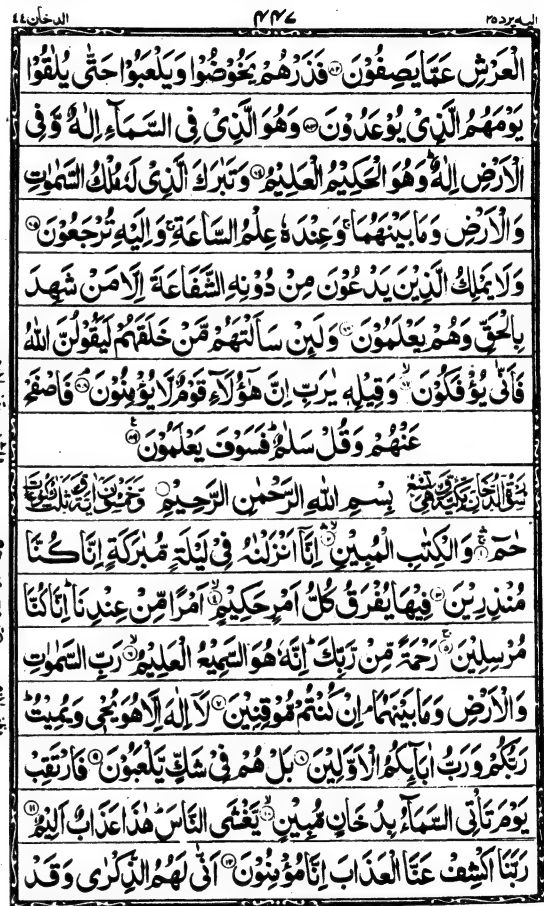 الیه یرد ۲۵ ۴۴۷ الدخان ۴۴
الْعَرْشِ عَمَّا يَصِفُوْنَ ﴿۸۲﴾ فَذَرْهُمْ يَخُوْضُوْا وَيَلْعَبُوْا حَتّٰى يُلٰقُوْا
يَوْمَهُمُ الَّذِيْ يُوْعَدُوْنَ ﴿۸۳﴾ وَهُوَ الَّذِيْ فِى السَّمَآءِ اِلٰهٌ وَّفِى
الْاَرْضِ اِلٰهٌ ؕ وَهُوَ الْحَكِيْمُ الْعَلِيْمُ ﴿۸۴﴾ وَتَبٰرَكَ الَّذِيْ لَهٗ مُلْكُ السَّمٰوٰتِ
وَالْاَرْضِ وَمَا بَيْنَهُمَا ۚ وَعِنْدَهٗ عِلْمُ السَّاعَةِ ۚ وَاِلَيْهِ تُرْجَعُوْنَ ﴿۸۵﴾
وَلَا يَمْلِكُ الَّذِيْنَ يَدْعُوْنَ مِنْ دُوْنِهِ الشَّفَاعَةَ اِلَّا مَنْ شَهِدَ
بِالْحَقِّ وَهُمْ يَعْلَمُوْنَ ﴿۸۶﴾ وَلَىِٕنْ سَاَلْتَهُمْ مَّنْ خَلَقَهُمْ لَيَقُوْلُنَّ اللّٰهُ
فَاَنّٰى يُؤْفَكُوْنَ ﴿۸۷﴾ وَقِيْلِهٖ يٰرَبِّ اِنَّ هٰٓؤُلَآءِ قَوْمٌ لَّا يُؤْمِنُوْنَ ﴿۸۸﴾ فَاصْفَحْ
عَنْهُمْ وَقُلْ سَلٰمٌ ؕ فَسَوْفَ يَعْلَمُوْنَ ﴿۸۹﴾
بِسْمِ اللّٰهِ الرَّحْمٰنِ الرَّحِيْمِ
حٰمٓ ﴿۱﴾ وَالْكِتٰبِ الْمُبِيْنِ ﴿۲﴾ اِنَّآ اَنْزَلْنٰهُ فِيْ لَيْلَةٍ مُّبٰرَكَةٍ اِنَّا كُنَّا
مُنْذِرِيْنَ ﴿۳﴾ فِيْهَا يُفْرَقُ كُلُّ اَمْرٍ حَكِيْمٍ ﴿۴﴾ اَمْرًا مِّنْ عِنْدِنَا ؕ اِنَّا كُنَّا
مُرْسِلِيْنَ ﴿۵﴾ رَحْمَةً مِّنْ رَّبِّكَ ؕ اِنَّهٗ هُوَ السَّمِيْعُ الْعَلِيْمُ ﴿۶﴾ رَبِّ السَّمٰوٰتِ
وَالْاَرْضِ وَمَا بَيْنَهُمَا ۘ اِنْ كُنْتُمْ مُّوْقِنِيْنَ ﴿۷﴾ لَآ اِلٰهَ اِلَّا هُوَ يُحْيٖ وَيُمِيْتُ ؕ
رَبُّكُمْ وَرَبُّ اٰبَآىِٕكُمُ الْاَوَّلِيْنَ ﴿۸﴾ بَلْ هُمْ فِيْ شَكٍّ يَّلْعَبُوْنَ ﴿۹﴾ فَارْتَقِبْ
يَوْمَ تَاْتِى السَّمَآءُ بِدُخَانٍ مُّبِيْنٍ ﴿۱۰﴾ يَّغْشَى النَّاسَ ؕ هٰذَا عَذَابٌ اَلِيْمٌ ﴿۱۱﴾
رَبَّنَا اكْشِفْ عَنَّا الْعَذَابَ اِنَّا مُؤْمِنُوْنَ ﴿۱۲﴾ اَنّٰى لَهُمُ الذِّكْرٰى وَقَدْ